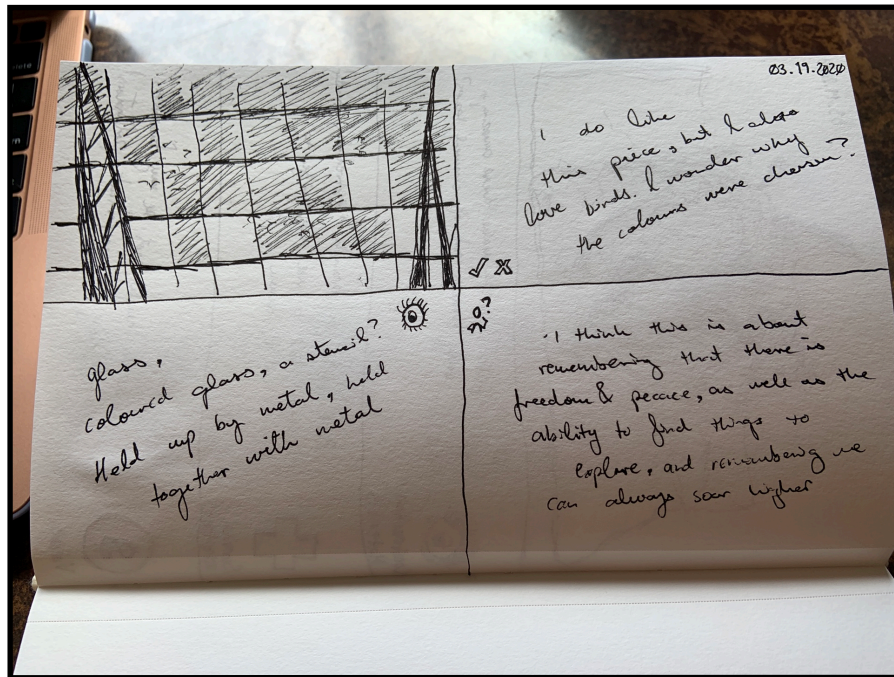 03.19.2020
I do like
this piece, but I also
love birds. I wonder why
the colours were chosen?
glass,
coloured glass, a stencil?
Held up by metal, held
together with metal
I think this is about
remembering that there is
freedom & peace, as well as the
ability to find things to
explore, and remembering we
can always soar higher